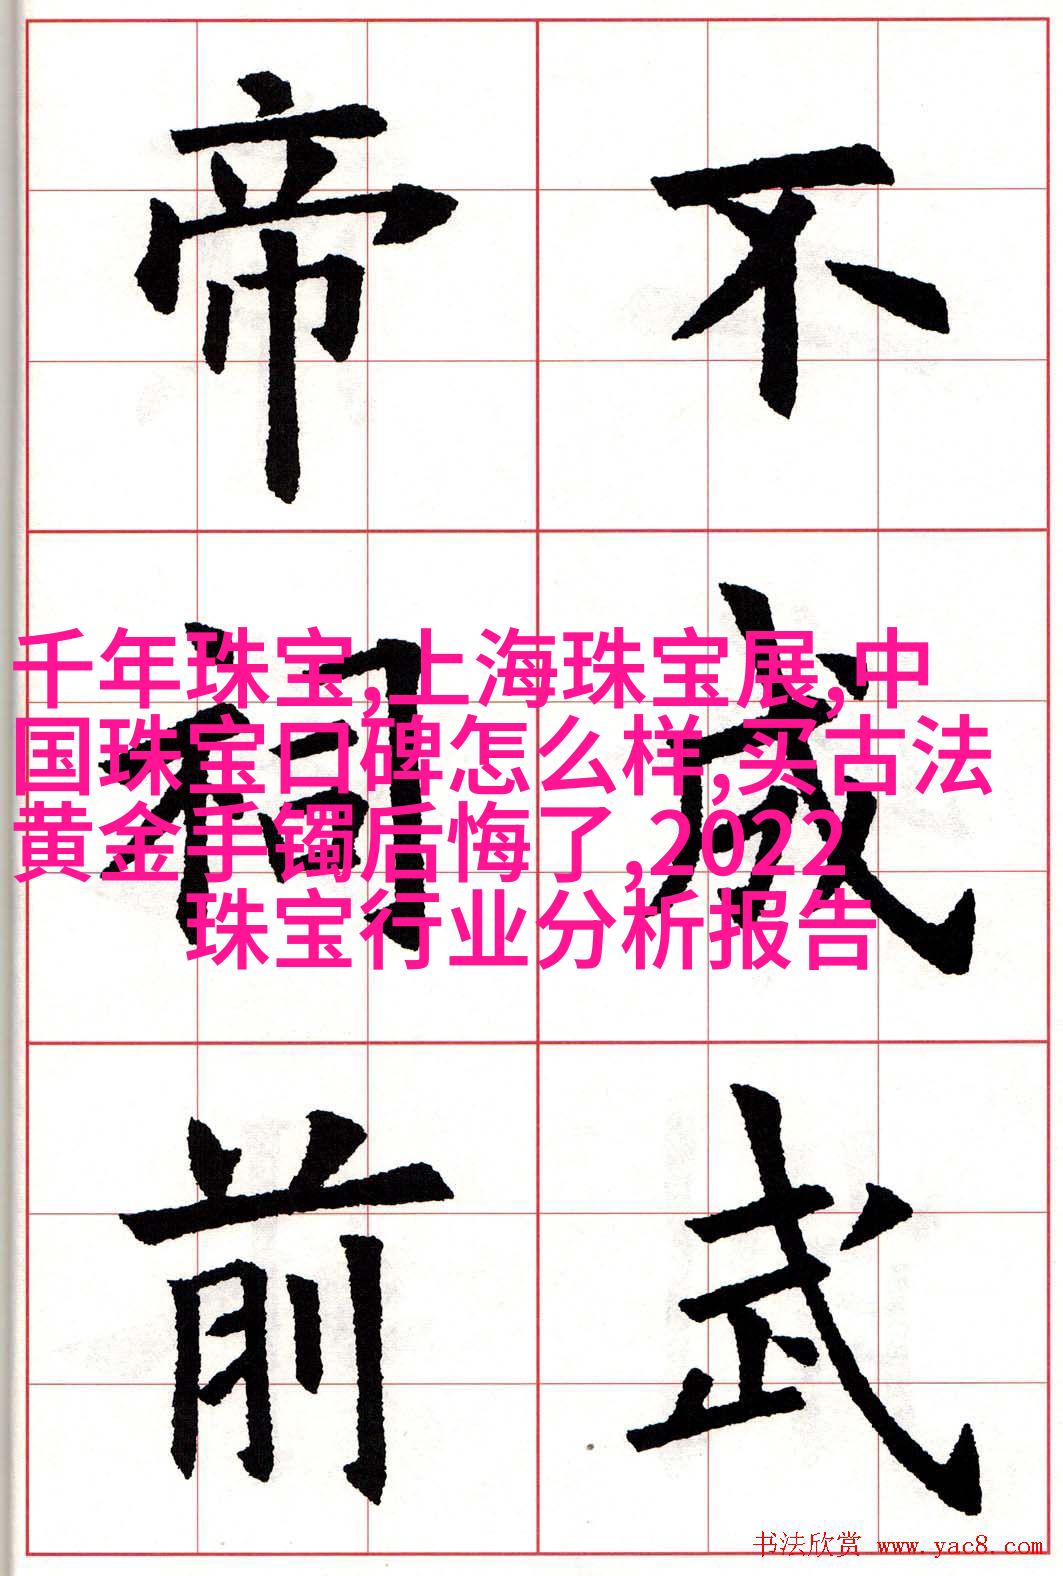 不武
帝祠前
千年珠宝,上海珠宝展,中
国珠宝口碑怎么样,买古法
黄金手镯后悔了,2022
珠宝行业分析报告
书法欣赏 www.yac8.com